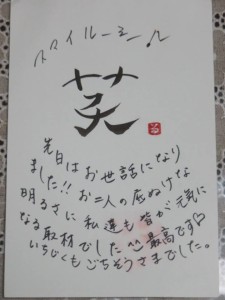 スマイルーミー♪
笑
先日はお世話になり
ました!!お二人の底ぬけな
明るさに私達も皆が元気に
なる取材でした^^最高です♡
いちじくもごちそうさまでした。